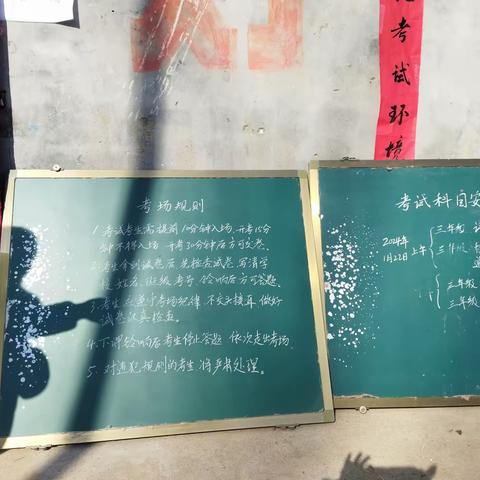 考试环境
考场规则
1. 考试考生需提前10分钟入场,开考15分
钟不得入场,开考30分钟后方可交卷。
2. 考生拿到试卷后,先检查试卷,写清学
校、姓名、班级、考号,铃响后方可答题。
3. 考生应遵守考场纪律,不交头接耳,做好
试卷认真检查。
4. 下课铃响后考生停止答题,依次走出考场.
5. 对违犯规则的考生将严肃处理。
考试科目安
2024年
1月22日上午
三年级
三年级
三年级
三年级